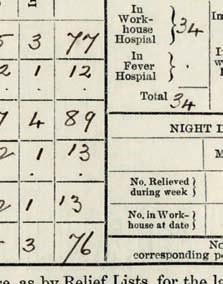 In
Work-
house
Hospial
34
In
5 3 77
In
Fever
Hospial
.
2 1 12
. . .
Total 34
7 4 89
NIGHT I
2 1 13
M
. . .
No. Relieved
during week
2 1 13
No. in Work-
house at date
3 76
No
corresponding pe
re, as by Relief Lists, for the la